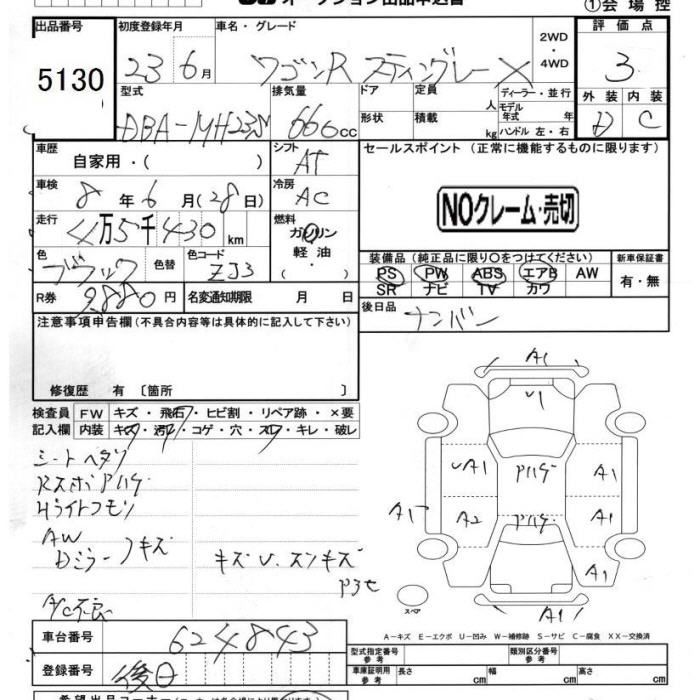 オークション出品申込書
①会場控
出品番号
5130
初度登録年月
23 6月
車名・グレード
ワゴンR スティングレー X
2WD
・
4WD
評価点
3
型式
DBA-MH23S
排気量
660cc
ドア
定員
人
ディーラー・並行
モデル
年式 年
形状
積載
kg
ハンドル 左・右
外装 内装
D C
車歴
自家用・( )
シフト
AT
セールスポイント (正常に機能するものに限ります)
車検
8年6月(28日)
冷房
AC
NOクレーム・売切
走行
万5千430km
燃料
ガソリン
軽油
・( )
色
ブラック
色替
色コード
ZJ3
装備品(純正品に限り○をつけてください)
新車保証書
PS PW ABS エアB AW
SR ナビ TV カワ
有・無
R券
9880円
名変通知期限 月 日
後日品
ナンバン
注意事項申告欄(不具合内容等は具体的に記入して下さい)
修復歴 有〔箇所 〕
検査員
記入欄
FW キズ・飛石・ヒビ割・リペア跡・×要
内装 キズ・汚れ・コゲ・穴・スレ・キレ・破レ
シートヘタリ
Hライトクモリ
AW
Dミラー キズ
キズ U.スンキズ
A/C不良
A1
U1
UA1
A1
A1
A2
A1
A1
A1
スペア
A-キズ E-エクボ U-凹み W-補修跡 S-サビ C-腐食 XX-交換済
車台番号
624843
登録番号
後日
型式指定番号
参考
類別区分番号
参考
車庫証明用
参考
長さ cm
幅 cm
高さ cm